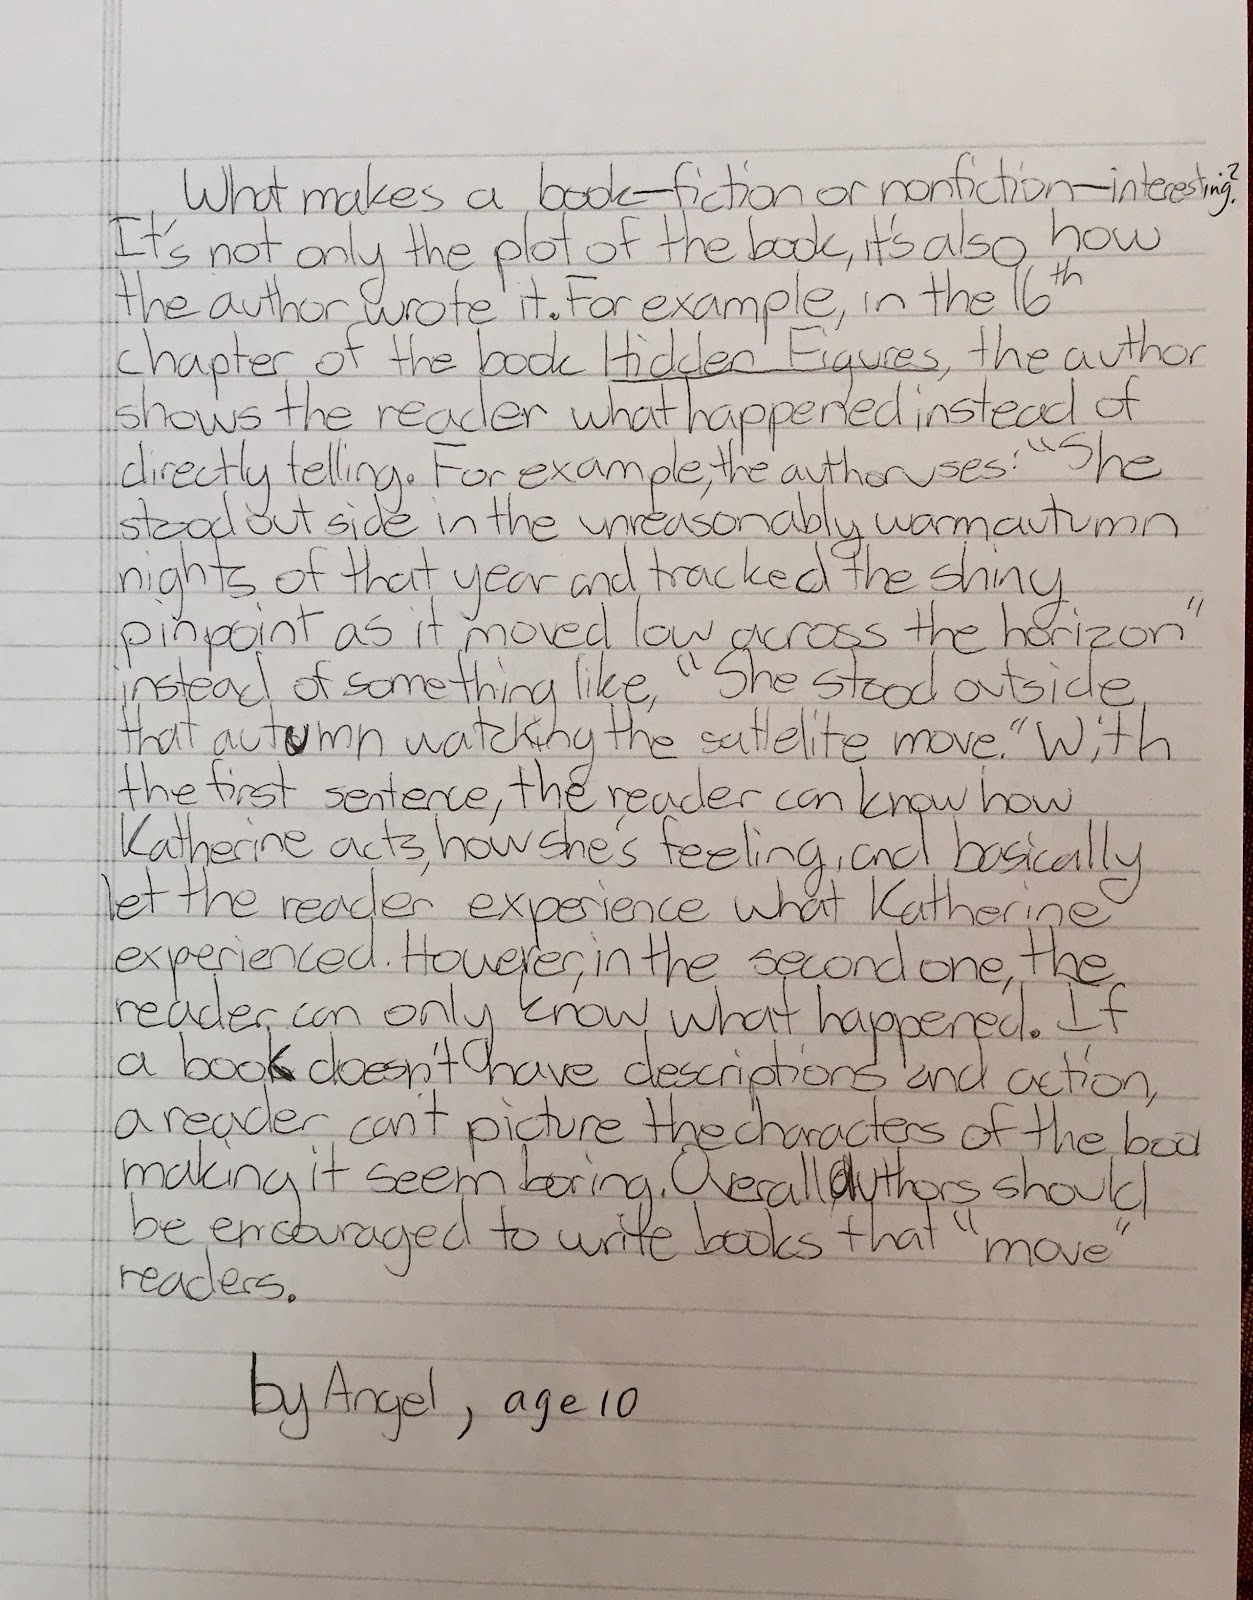 What makes a book—fiction or nonfiction—interesting?
It's not only the plot of the book, it's also how
the author wrote it. For example, in the 16th
chapter of the book Hidden Figures, the author
shows the reader what happened instead of
directly telling. For example, the author uses: "She
stood out side in the unreasonably warm autumn
nights of that year and tracked the shiny
pinpoint as it moved low across the horizon"
instead of something like, "She stood outside
that autumn watching the satlelite move." With
the first sentence, the reader can know how
Katherine acts, how she's feeling, and basically
let the reader experience what Katherine
experienced. However, in the second one, the
reader can only know what happened. If
a book doesn't have descriptions and action,
a reader can't picture the characters of the book
making it seem boring. Overall authors should
be encouraged to write books that "move"
readers.
by Angel, age 10